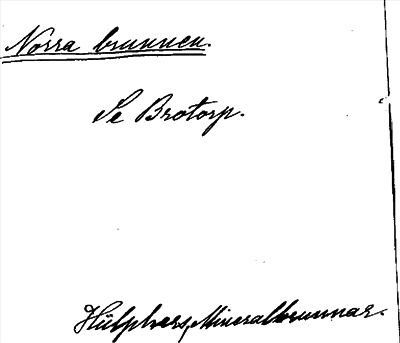 Norra brunnen.
Se Brotorp.
Hülphers, Mineralbrunnar.